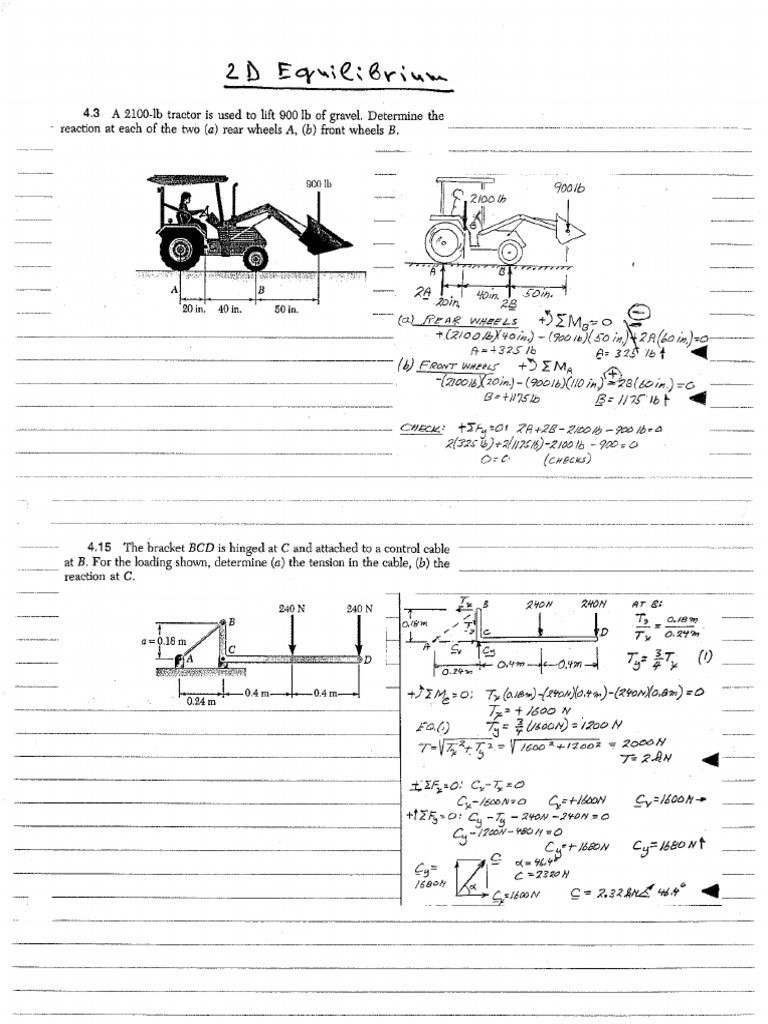 2D Equilibrium
4.3 A 2100-lb tractor is used to lift 900 lb of gravel. Determine the
reaction at each of the two (a) rear wheels A, (b) front wheels B.
900 lb
A
B
20 in.
40 in.
50 in.
2100 lb
900 lb
A
B
2A
20 in.
40 in.
2B
50 in.
(a) REAR WHEELS +↺ ΣM_B = 0
+(2100 lb)(40 in.) - (900 lb)(50 in.) + 2A(60 in.) = 0
A = +325 lb A = 325 lb ↑
(b) FRONT WHEELS +↺ ΣM_A
-(2100 lb)(20 in.) - (900 lb)(110 in.) 2B(60 in.) = 0
B = +1175 lb B = 1175 lb ↑
CHECK: +ΣF_y = 0: 2A + 2B - 2100 lb - 900 lb = 0
2(325 lb) + 2(1175 lb) - 2100 lb - 900 = 0
0 = 0 (CHECKS)
4.15 The bracket BCD is hinged at C and attached to a control cable
at B. For the loading shown, determine (a) the tension in the cable, (b) the
reaction at C.
240 N
240 N
B
a = 0.18 m
A
C
D
0.4 m
0.4 m
0.24 m
T_x
B
240N
240N
0.18m
T_y
C
D
A
C_x
C_y
0.24m
0.4m
0.4m
AT B:
T_y / T_x = 0.18m / 0.24m
T_y = 3/4 T_x (1)
+↺ ΣM_C = 0: T_x(0.18m) - (240N)(0.4m) - (240N)(0.8m) = 0
T_x = +1600 N
EQ.(1) T_y = 3/4 (1600N) = 1200 N
T = √(T_x² + T_y²) = √(1600² + 1200²) = 2000N
T = 2 kN
+ΣF_x = 0: C_x - T_x = 0
C_x - 1600N = 0 C_x = +1600N C_x = 1600N →
+↑ΣF_y = 0: C_y - T_y - 240N - 240N = 0
C_y - 1200N - 480N = 0
C_y = +1680N C_y = 1680N ↑
C_y =
1680N
C
α
α = 46.4°
C = 2320N
C_x = 1600N
C = 2.32 kN ∠ 46.4°